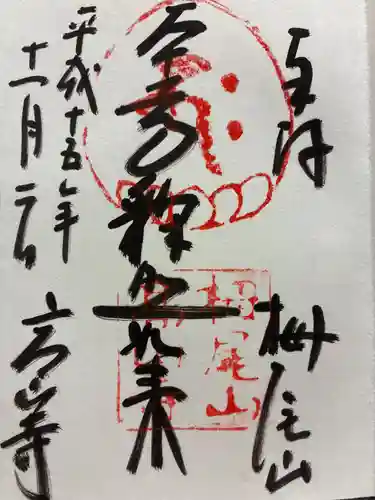 奉拝
栂尾山
本尊釋迦如来
平成十五年
十一月二日
高山寺
栂尾山